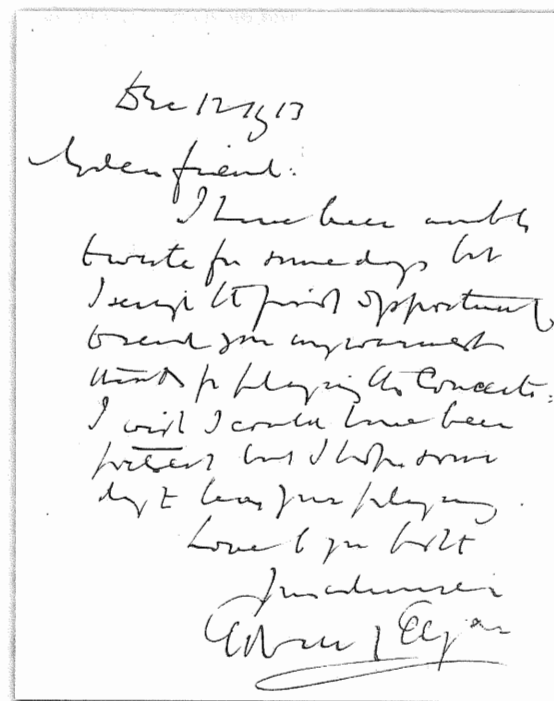 Dec 12 1913
My dear friend:
I have been unable
to write for some days but
I seize the first opportunity
to send you my warmest
thanks for playing the Concerto:
I wish I could have been
present but I hope some
day to hear your playing.
Love to you both
Yours
Edward Elgar